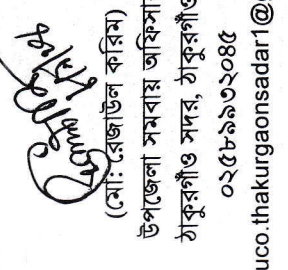 (মো: রেজাউল করিম)
উপজেলা সমবায় অফিসার
ঠাকুরগাঁও সদর, ঠাকুরগাঁও
০২৫৮৯৯৩২০৪৫
uco.thakurgaonsadar1@